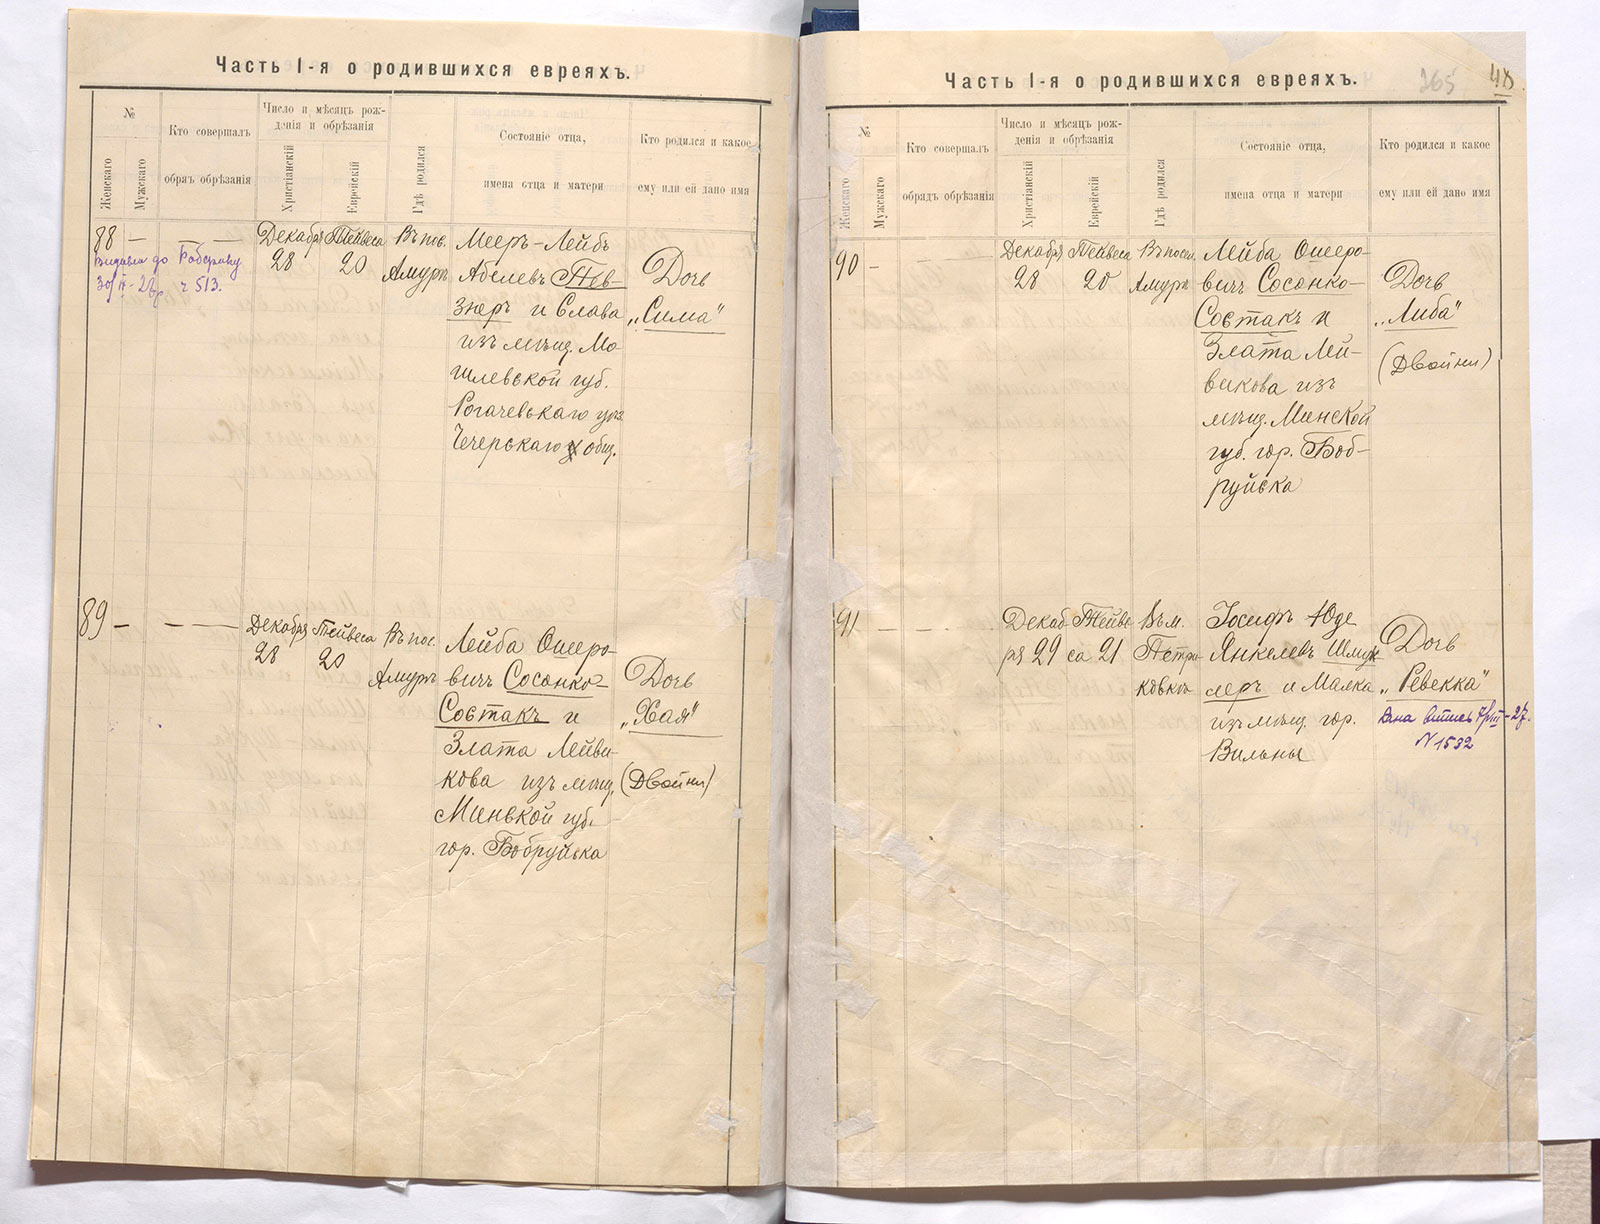 Часть I-я о родившихся евреяхъ.
№
Женскаго
Мужскаго
Кто совершалъ
обрядъ обрѣзанія
Число и мѣсяцъ рож-
денія и обрѣзанія
Христіанскій
Еврейскій
Гдѣ родился
Состояніе отца,
имена отца и матери
Кто родился и какое
ему или ей дано имя
88 — — —
Декабря 28
Тейвеса 20
Въ пос.
Амуръ
Мееръ-Лейбъ
Абелевъ Пев-
знеръ и Слава
изъ мѣщ. Мо-
гилевской губ.
Рогачевскаго уѣз.
Чечерскаго общ.
Дочь
„Сима"
30/IV-27р. ч 513.
89 — — —
Декабря 28
Тейвеса 20
Въ пос.
Амуръ
Лейба Ошеро-
вичъ Сосонко-
Состакъ и
Злата Лейви-
кова изъ мѣщ.
Минской губ.
гор. Бобруйска
Дочь
„Хая"
(Двойни)
Часть I-я о родившихся евреяхъ.
265
48
№
Женскаго
Мужскаго
Кто совершалъ
обрядъ обрѣзанія
Число и мѣсяцъ рож-
денія и обрѣзанія
Христіанскій
Еврейскій
Гдѣ родился
Состояніе отца,
имена отца и матери
Кто родился и какое
ему или ей дано имя
90 — —
Декабря 28
Тейвеса 20
Въ посел.
Амуръ
Лейба Ошеро-
вичъ Сосонко-
Состакъ и
Злата Лей-
викова изъ
мѣщ. Минской
губ. гор. Боб-
руйска
Дочь
„Либа"
(Двойни)
91 — — —
Декаб-
ря 29
Тейве-
са 21
Въ м.
Петри-
ковкѣ
Іосифъ Юде
Янкелевъ Шмук-
леръ и Малка
изъ мѣщ. гор.
Вильны
Дочь
„Ревекка"
Дана выпись 7/VIII-27.
N 1532